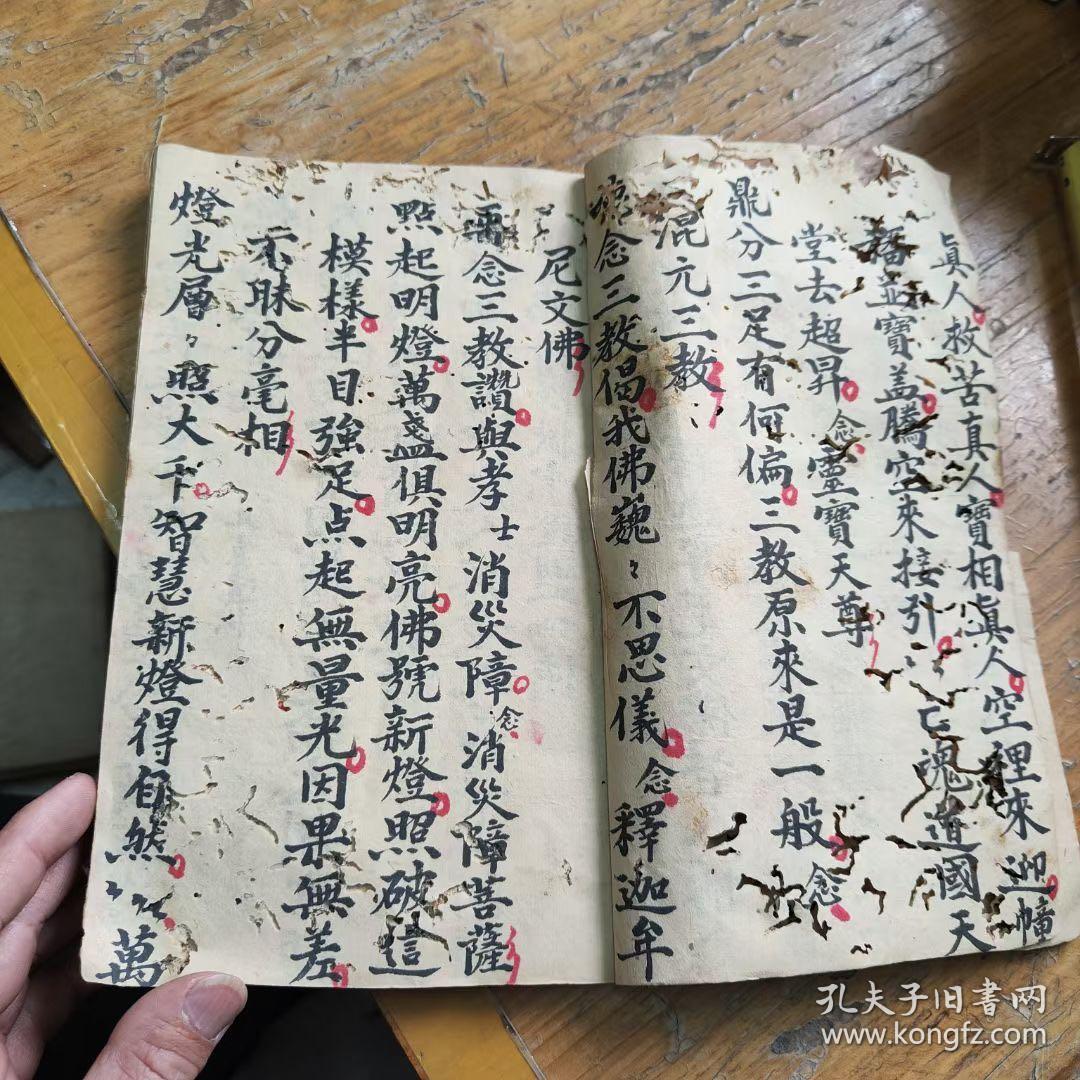 真人救苦真人寶相真人空裡來迎幡
並寶盖騰空來接引亡魂道國天
堂去超昇念靈寶天尊
鼎分三足有何偏三教原來是一般念
混元三教
念三教偈我佛巍〻不思儀念釋迦牟
尼文佛
念三教讚與孝士消災障念消災障菩薩
點起明燈萬盞俱明亮佛號新燈照破這
模樣半目強足点起無量光因果無差
不昧分毫相
燈光層〻照大千智慧新燈得自然〻〻萬
孔夫子旧書网
www.kongfz.com